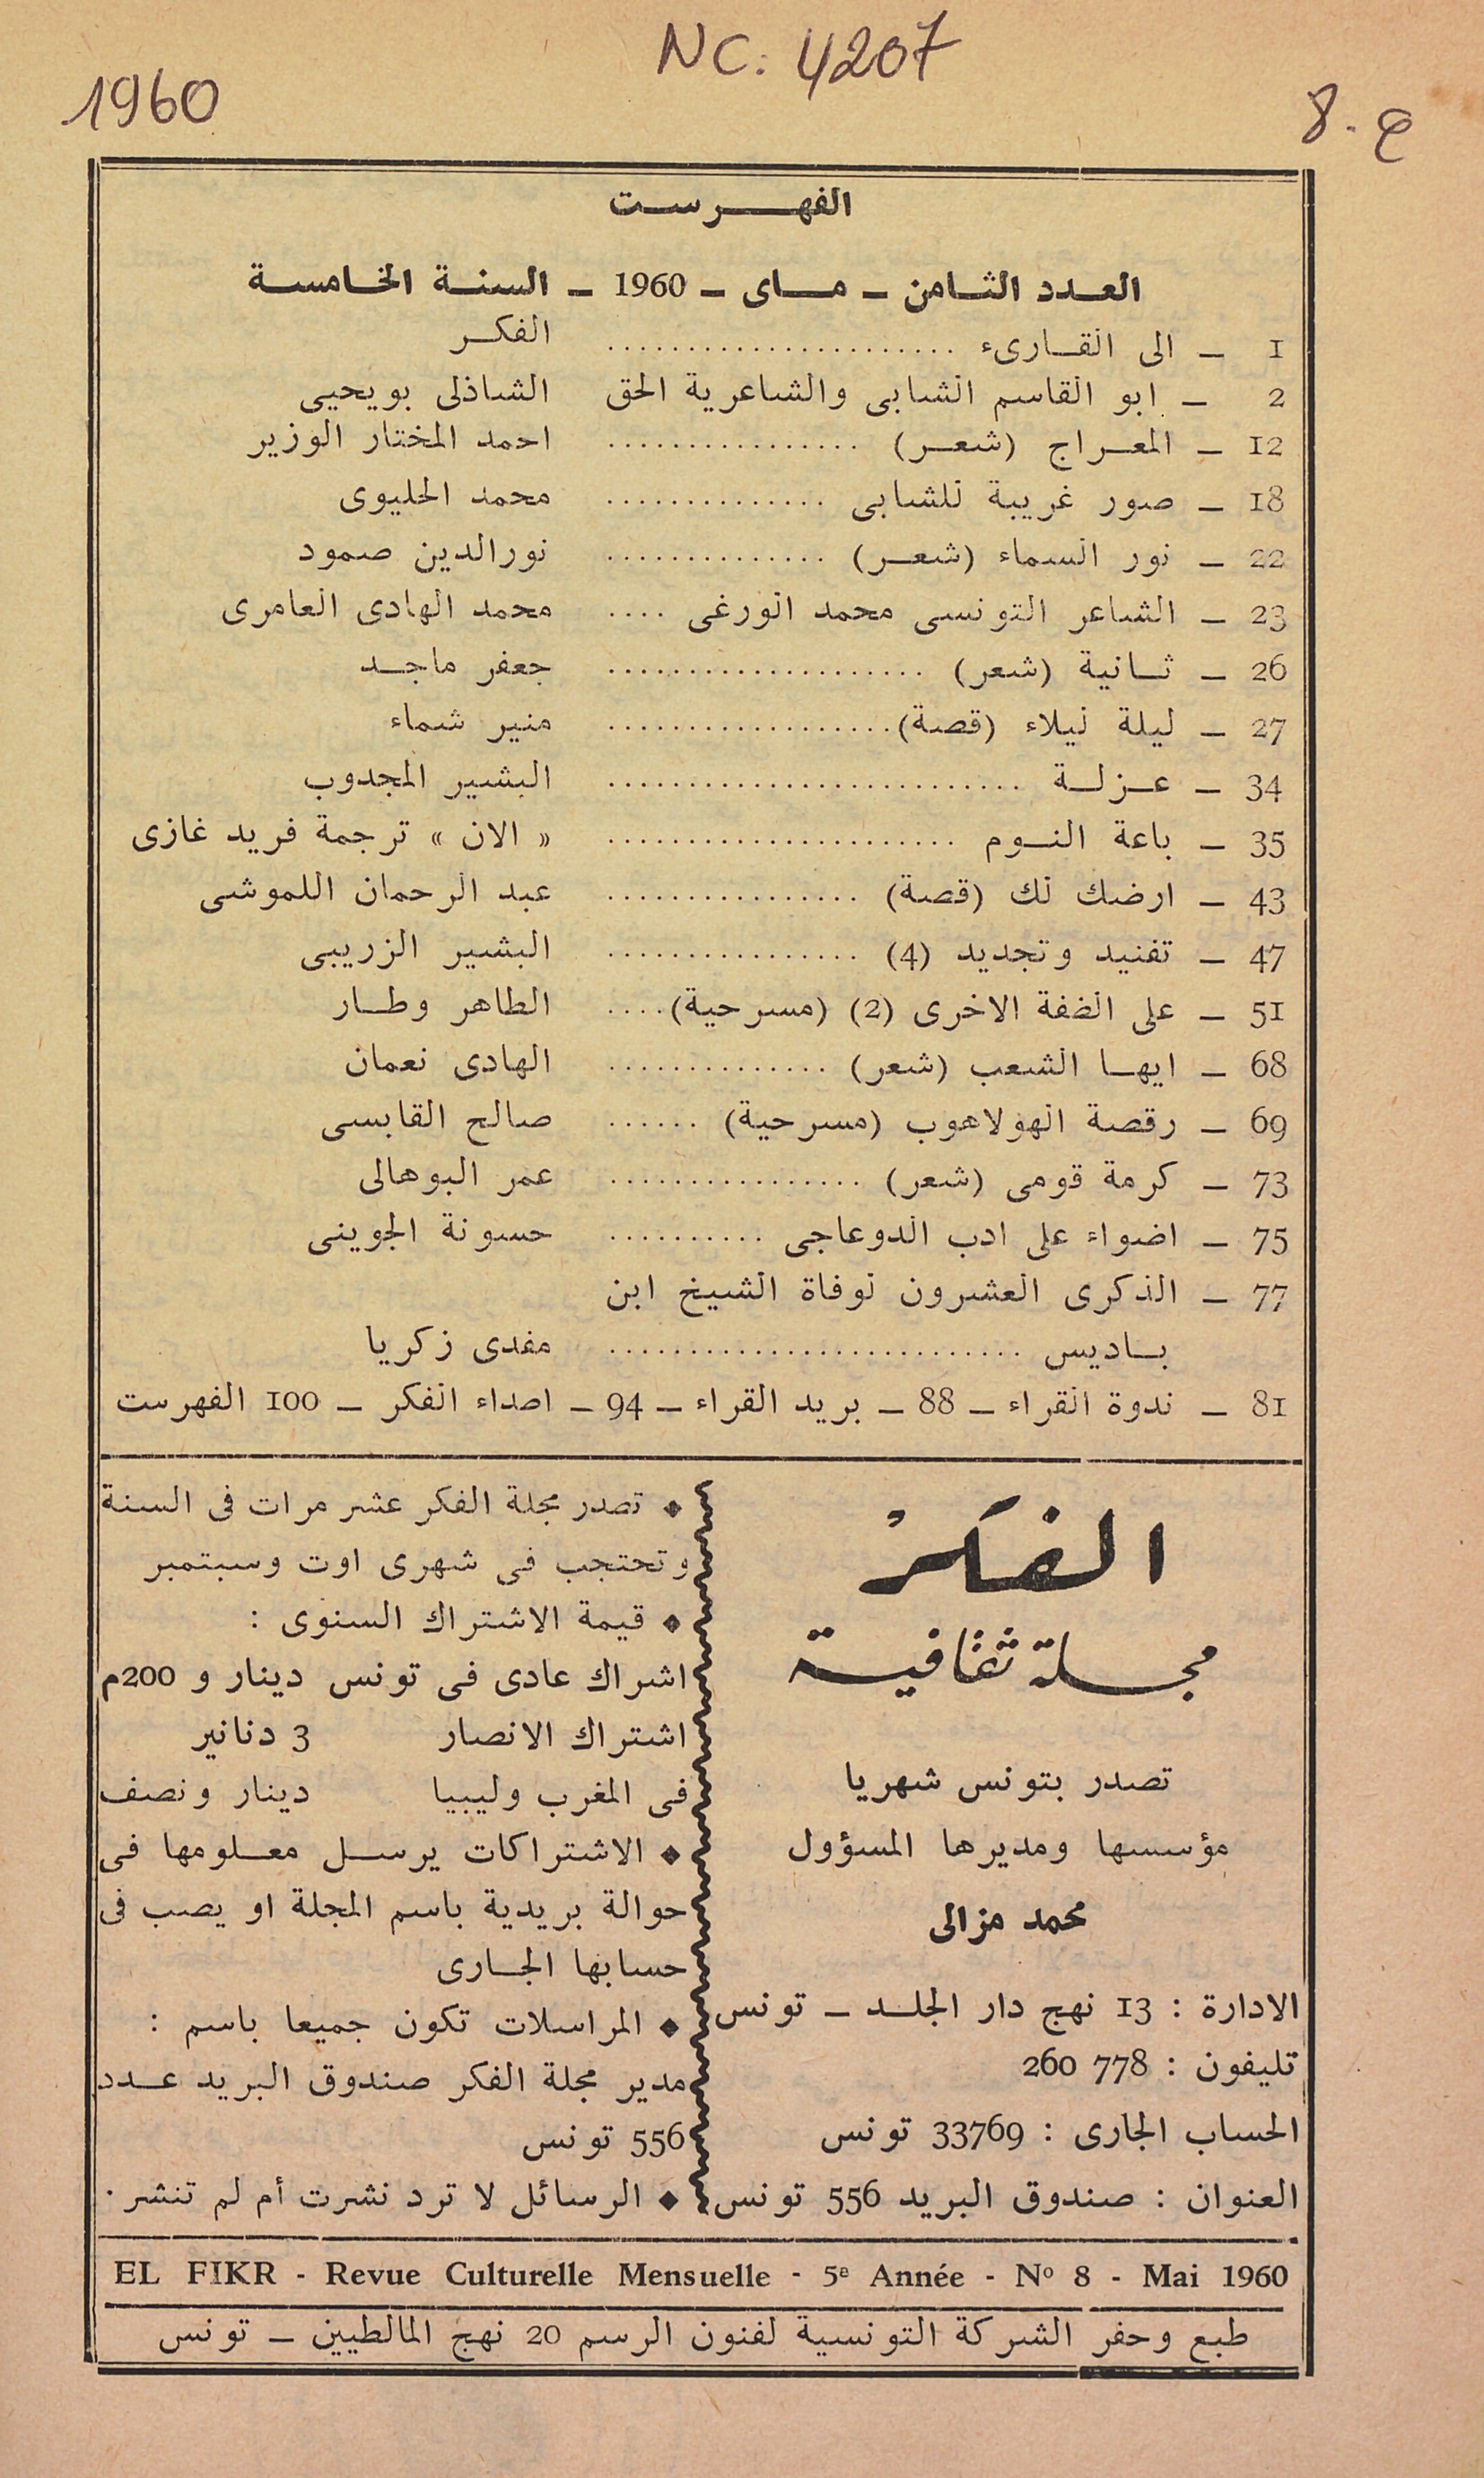 NC: 4207
1960
8. ع
الفهرست
العدد الثامن – ماى – 1960 – السنة الخامسة
1 – الى القارىء ...................... الفكر
2 – ابو القاسم الشابى والشاعرية الحق الشاذلى بويحيى
12 – المعراج (شعر) ................ احمد المختار الوزير
18 – صور غريبة للشابى .............. محمد الحليوى
22 – نور السماء (شعر) .............. نورالدين صمود
23 – الشاعر التونسى محمد الورغى .... محمد الهادى العامرى
26 – ثانية (شعر) .................... جعفر ماجد
27 – ليلة ليلاء (قصة) .................. منير شماء
34 – عزلة .......................... البشير المجدوب
35 – باعة النوم ...................... « الان » ترجمة فريد غازى
43 – ارضك لك (قصة) ................ عبد الرحمان اللموشى
47 – تفنيد وتجديد (4) ................ البشير الزريبى
51 – على الضفة الاخرى (2) (مسرحية) .... الطاهر وطار
68 – ايها الشعب (شعر) .............. الهادى نعمان
69 – رقصة الهولاهوب (مسرحية) ...... صالح القابسى
73 – كرمة قومى (شعر) ................ عمر البوهالى
75 – اضواء على ادب الدوعاجى .......... حسونة الجوينى
77 – الذكرى العشرون لوفاة الشيخ ابن
باديس .......................... مفدى زكريا
81 – ندوة القراء – 88 – بريد القراء – 94 – اصداء الفكر – 100 الفهرست
الفكر
مجلة ثقافية
تصدر بتونس شهريا
مؤسسها ومديرها المسؤول
محمد مزالى
الادارة : 13 نهج دار الجلد – تونس
تليفون : 778 260
الحساب الجارى : 33769 تونس
العنوان : صندوق البريد 556 تونس
◆ تصدر مجلة الفكر عشر مرات فى السنة
وتحتجب فى شهرى اوت وسبتمبر
◆ قيمة الاشتراك السنوى :
اشراك عادى فى تونس دينار و 200م
اشتراك الانصار 3 دنانير
فى المغرب وليبيا دينار ونصف
◆ الاشتراكات يرسل معلومها فى
حوالة بريدية باسم المجلة او يصب فى
حسابها الجارى
◆ المراسلات تكون جميعا باسم :
مدير مجلة الفكر صندوق البريد عدد
556 تونس
◆ الرسائل لا ترد نشرت أم لم تنشر .
EL FIKR - Revue Culturelle Mensuelle - 5e Année - No 8 - Mai 1960
طبع وحفر الشركة التونسية لفنون الرسم 20 نهج المالطيين – تونس